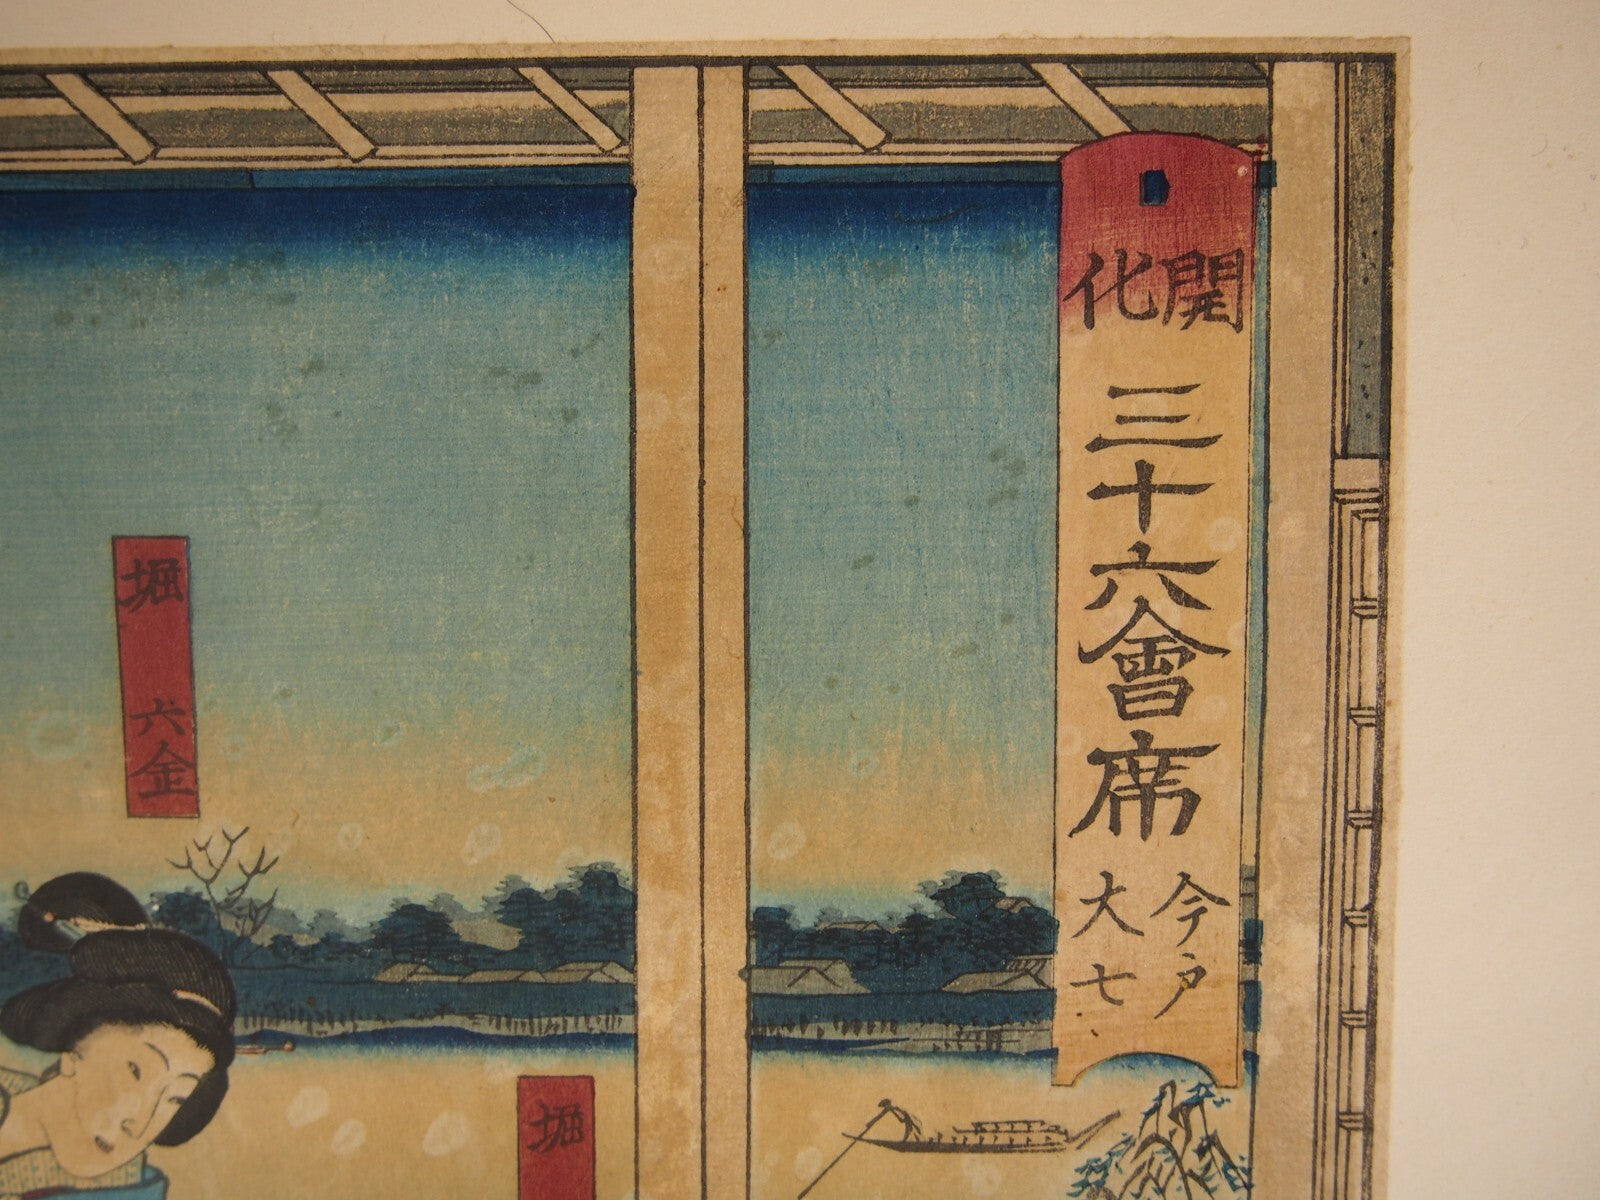 開化
三十六會席
今戸
大七
堀
六金
堀